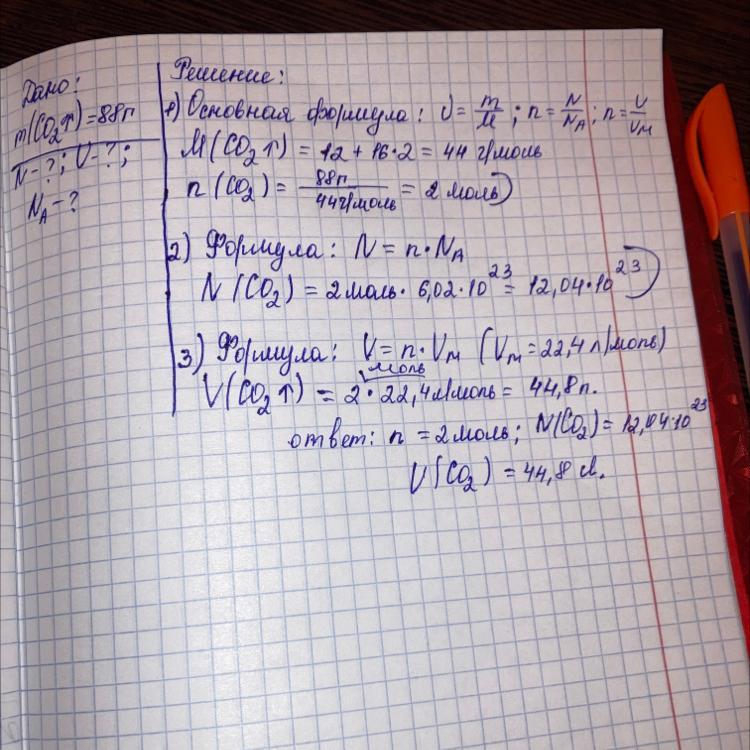 Дано:
m(CO₂↑)=88г
N-?; V-?;
N_A-?
Решение:
1) Основная формула: υ=m/M; n=N/N_A; n=V/V_M
M(CO₂↑)=12+16·2=44 г/моль
n(CO₂)=88г/44г/моль=2 моль)
2) Формула: N=n·N_A
N(CO₂)=2моль·6,02·10²³=12,04·10²³)
3) Формула: V=n·V_M (V_M=22,4л/моль)
моль
V(CO₂↑)=2·22,4л/моль=44,8л.
ответ: n=2моль; N(CO₂)=12,04·10²³
V(CO₂)=44,8 л.